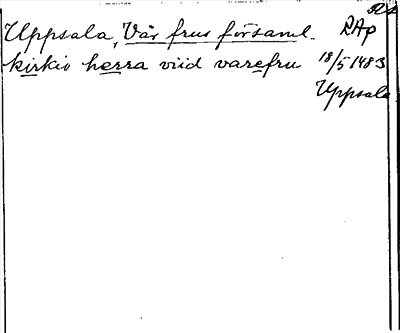 Uppsala, Vår frus församl.
RAp
kirkio herra viid varefru
18/5 1483
Uppsala